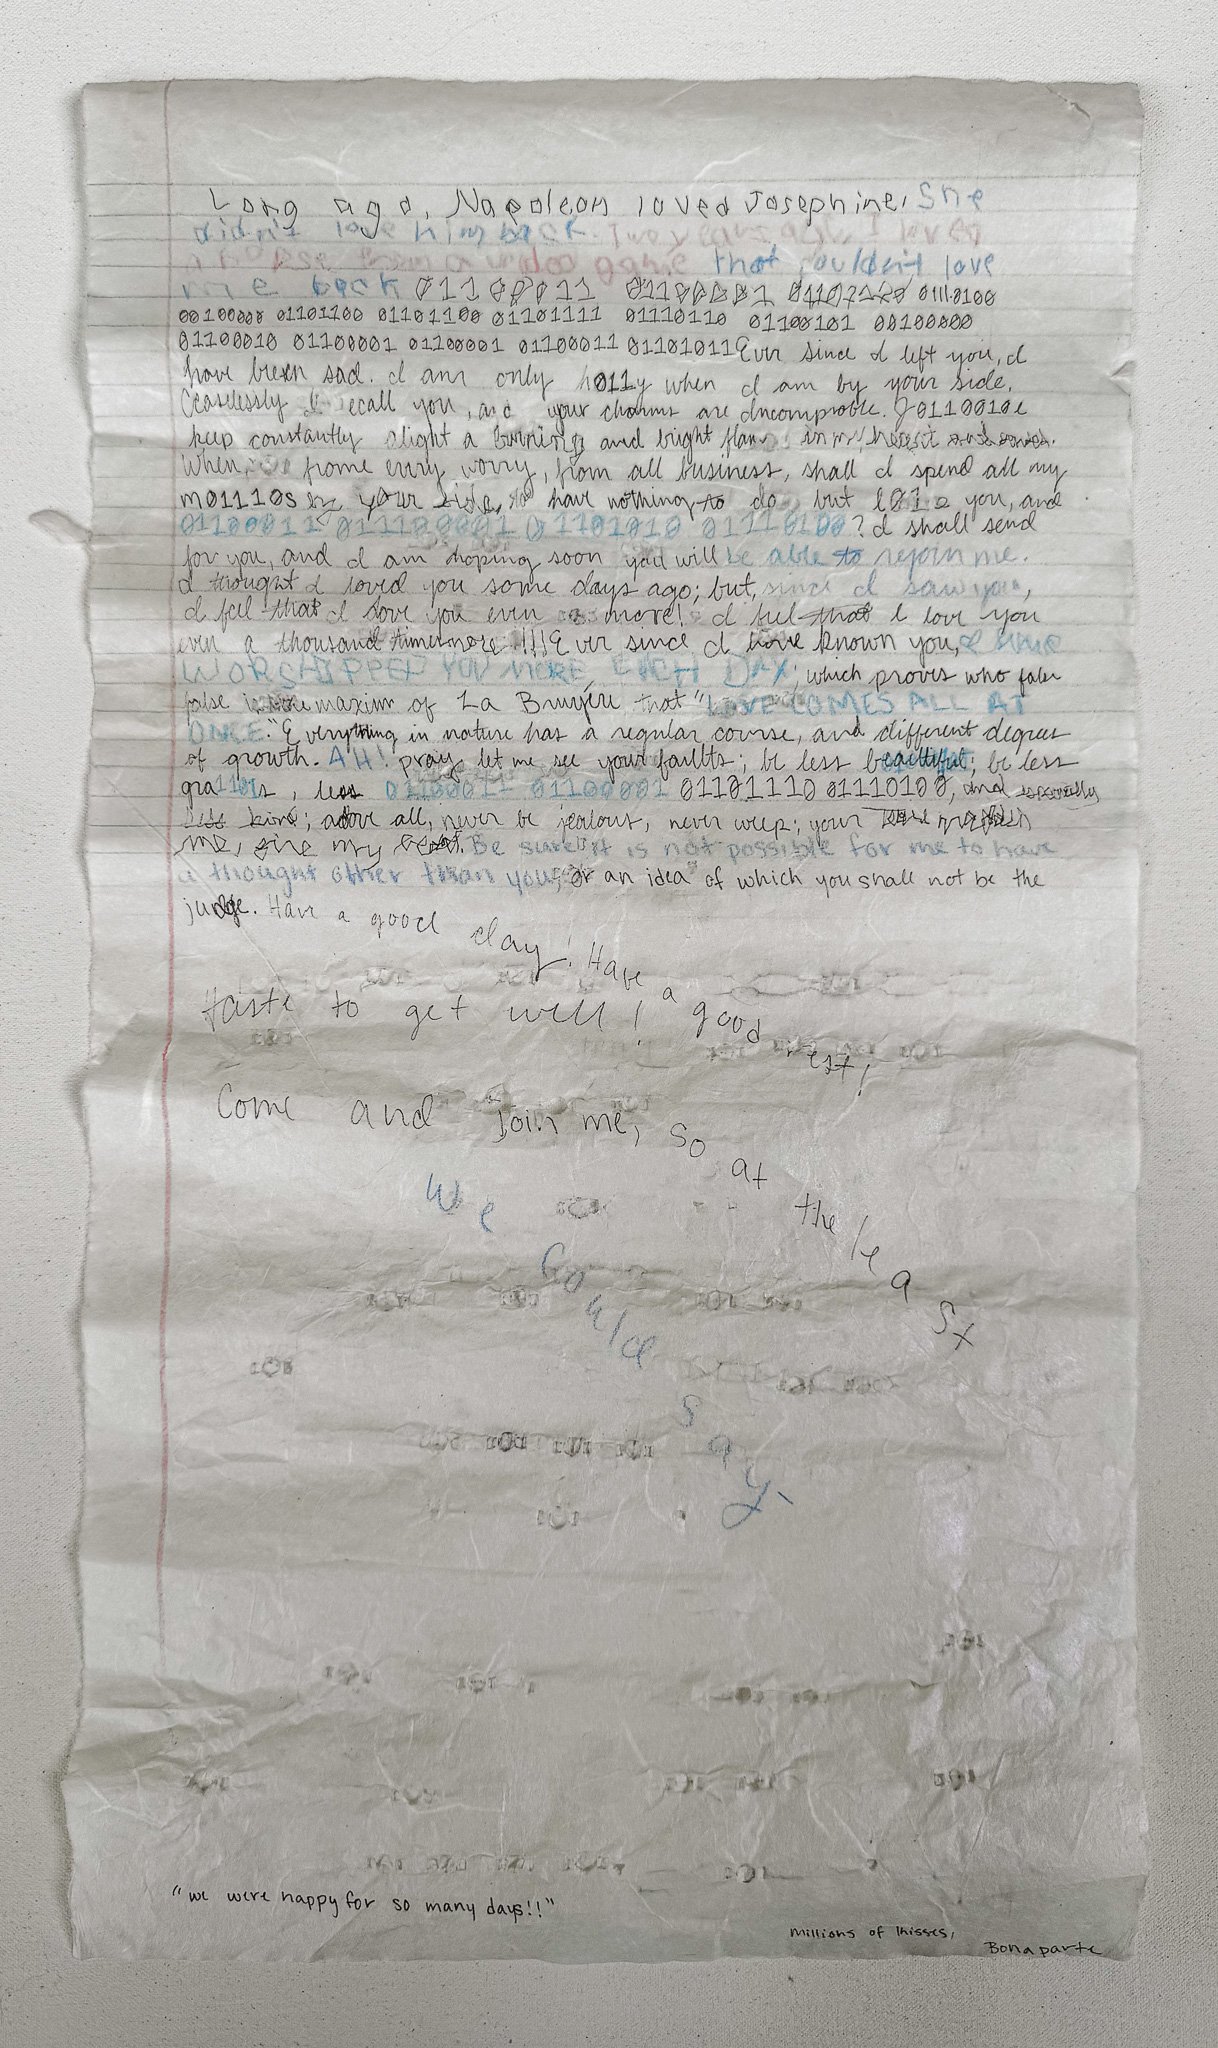 Long ago, Napoleon loved Josephine. She
didn't love him back. Two years ago, I loved
a video game that couldn't love
me back 01100011 01100001 01110100
00100000 01101100 01101111 01110110 01100101 00100000
01100010 01100001 01100001 01100011 01101011 Ever since I left you, I
have been sad. I am only h011y when I am by your side.
Ceaselessly I recall you, and your charms are Incomprable. I 0110010e
keep constantly alight a burning and bright flame in my heart
When, from every worry, from all business, shall I spend all my
m01110s by your side, to have nothing to do, but l01e you, and
01100011 011100001 01101010 01110100? I shall send
for you, and I am hoping soon you will be able to rejoin me.
I thought I loved you some days ago; but, since I saw you,
I feel that I love you even more! I feel that I love you
even a thousand times more!!!! Ever since I have known you, I have
WORSHIPPED YOU MORE EACH DAY; which proves who false
false is the maxim of La Bruyére that "LOVE COMES ALL AT
ONCE." Everything in nature has a regular course, and different degrees
of growth. AH! pray let me see your faults; be less beautiful; be less
gra110s, less 01100011 01100001 01101110 01110100, and especially
less kind; above all, never be jealous, never weep; your
me, fire my Be sure it is not possible for me to have
a thought other than you, or an idea of which you shall not be the
judge. Have a good day! Have a good rest!
Haste to get well!
Come and join me, so at the least
we could say,
"we were happy for so many days!!"
Millions of khisses,
Bonaparte